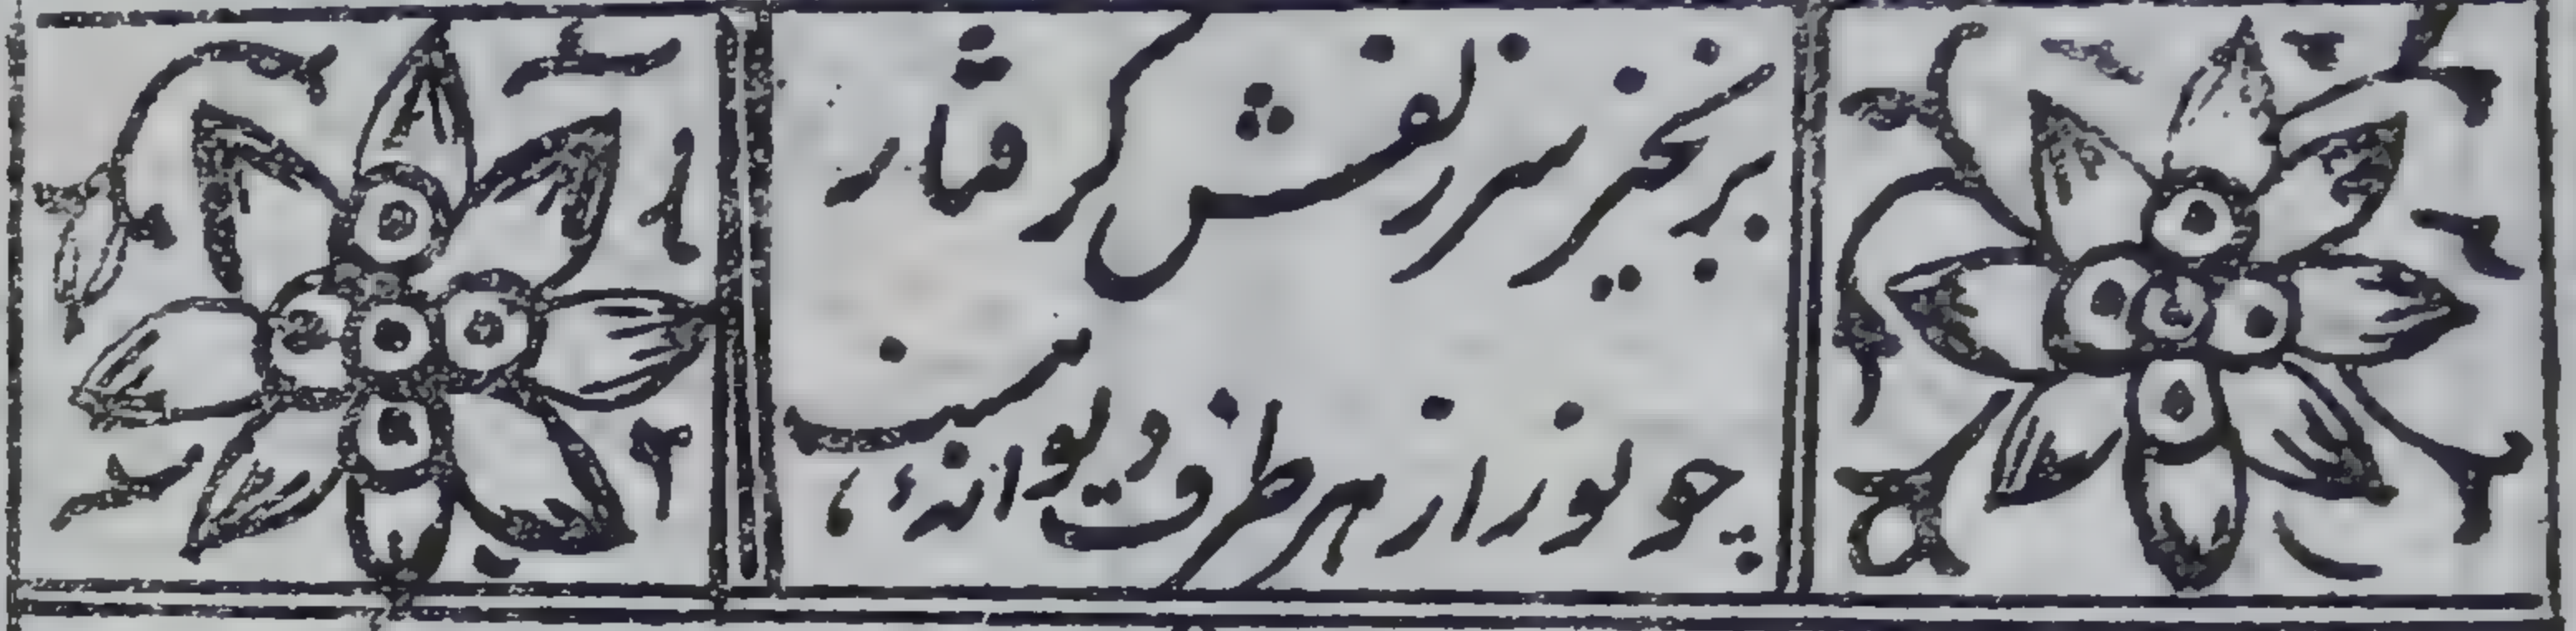 بزنجیر سر زلفش گرفتار
چو نوذر از هر طرف دیوانهٔ ہست